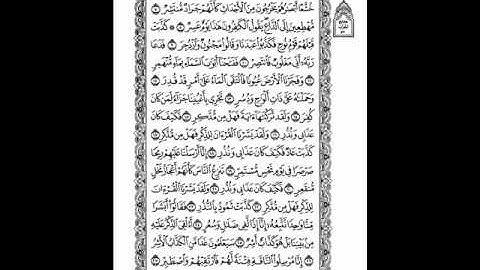 خُشَّعًا أَبْصَارُهُمْ يَخْرُجُونَ مِنَ الْأَجْدَاثِ كَأَنَّهُمْ جَرَادٌ مُّنتَشِرٌ ٧
مُّهْطِعِينَ إِلَى الدَّاعِ يَقُولُ الْكَافِرُونَ هَذَا يَوْمٌ عَسِرٌ ٨ ۞ كَذَّبَتْ
قَبْلَهُمْ قَوْمُ نُوحٍ فَكَذَّبُوا عَبْدَنَا وَقَالُوا مَجْنُونٌ وَازْدُجِرَ ٩ فَدَعَا
رَبَّهُ أَنِّي مَغْلُوبٌ فَانتَصِرْ ١٠ فَفَتَحْنَا أَبْوَابَ السَّمَاءِ بِمَاءٍ مُّنْهَمِرٍ
١١ وَفَجَّرْنَا الْأَرْضَ عُيُونًا فَالْتَقَى الْمَاءُ عَلَى أَمْرٍ قَدْ قُدِرَ ١٢
وَحَمَلْنَاهُ عَلَى ذَاتِ أَلْوَاحٍ وَدُسُرٍ ١٣ تَجْرِي بِأَعْيُنِنَا جَزَاءً لِّمَن كَانَ
كُفِرَ ١٤ وَلَقَد تَّرَكْنَاهَا آيَةً فَهَلْ مِن مُّدَّكِرٍ ١٥ فَكَيْفَ كَانَ
عَذَابِي وَنُذُرِ ١٦ وَلَقَدْ يَسَّرْنَا الْقُرْآنَ لِلذِّكْرِ فَهَلْ مِن مُّدَّكِرٍ ١٧
كَذَّبَتْ عَادٌ فَكَيْفَ كَانَ عَذَابِي وَنُذُرِ ١٨ إِنَّا أَرْسَلْنَا عَلَيْهِمْ رِيحًا
صَرْصَرًا فِي يَوْمِ نَحْسٍ مُّسْتَمِرٍّ ١٩ تَنزِعُ النَّاسَ كَأَنَّهُمْ أَعْجَازُ نَخْلٍ
مُّنقَعِرٍ ٢٠ فَكَيْفَ كَانَ عَذَابِي وَنُذُرِ ٢١ وَلَقَدْ يَسَّرْنَا الْقُرْآنَ
لِلذِّكْرِ فَهَلْ مِن مُّدَّكِرٍ ٢٢ كَذَّبَتْ ثَمُودُ بِالنُّذُرِ ٢٣ فَقَالُوا أَبَشَرًا
مِّنَّا وَاحِدًا نَّتَّبِعُهُ إِنَّا إِذًا لَّفِي ضَلَالٍ وَسُعُرٍ ٢٤ أَءُلْقِيَ الذِّكْرُ عَلَيْهِ
مِن بَيْنِنَا بَلْ هُوَ كَذَّابٌ أَشِرٌ ٢٥ سَيَعْلَمُونَ غَدًا مَّنِ الْكَذَّابُ الْأَشِرُ
٢٦ إِنَّا مُرْسِلُو النَّاقَةِ فِتْنَةً لَّهُمْ فَارْتَقِبْهُمْ وَاصْطَبِرْ ٢٧